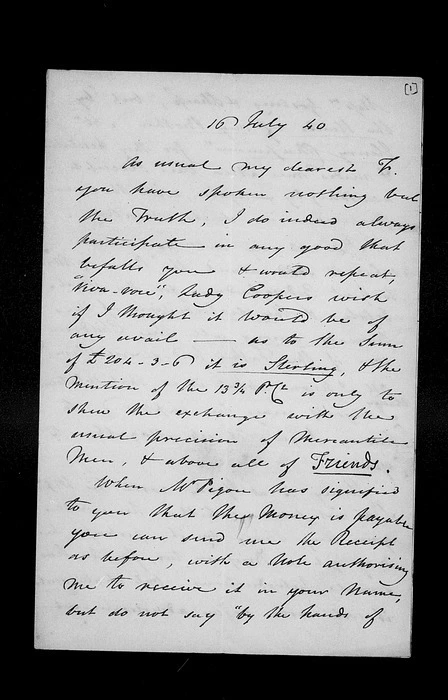 [1]
16 July 40
As usual my dearest Fr.
you have spoken nothing but
the Truth, I do indeed always
participate in any good that
befalls you & would repeat,
"viva-voce", Lady Coopers wish
if I thought it would be of
any avail — as to the Sum
of £204-3-6 it is Sterling, & the
mention of the 13¾ PrCt is only to
shew the exchange with the
usual precision of Mercantile
Men, & above all of Friends.
When Mr Pigou has signified
to you that the Money is payable
you can send me the Receipt
as before, with a Note authorising
me to receive it in your Name,
but do not say "by the hands of